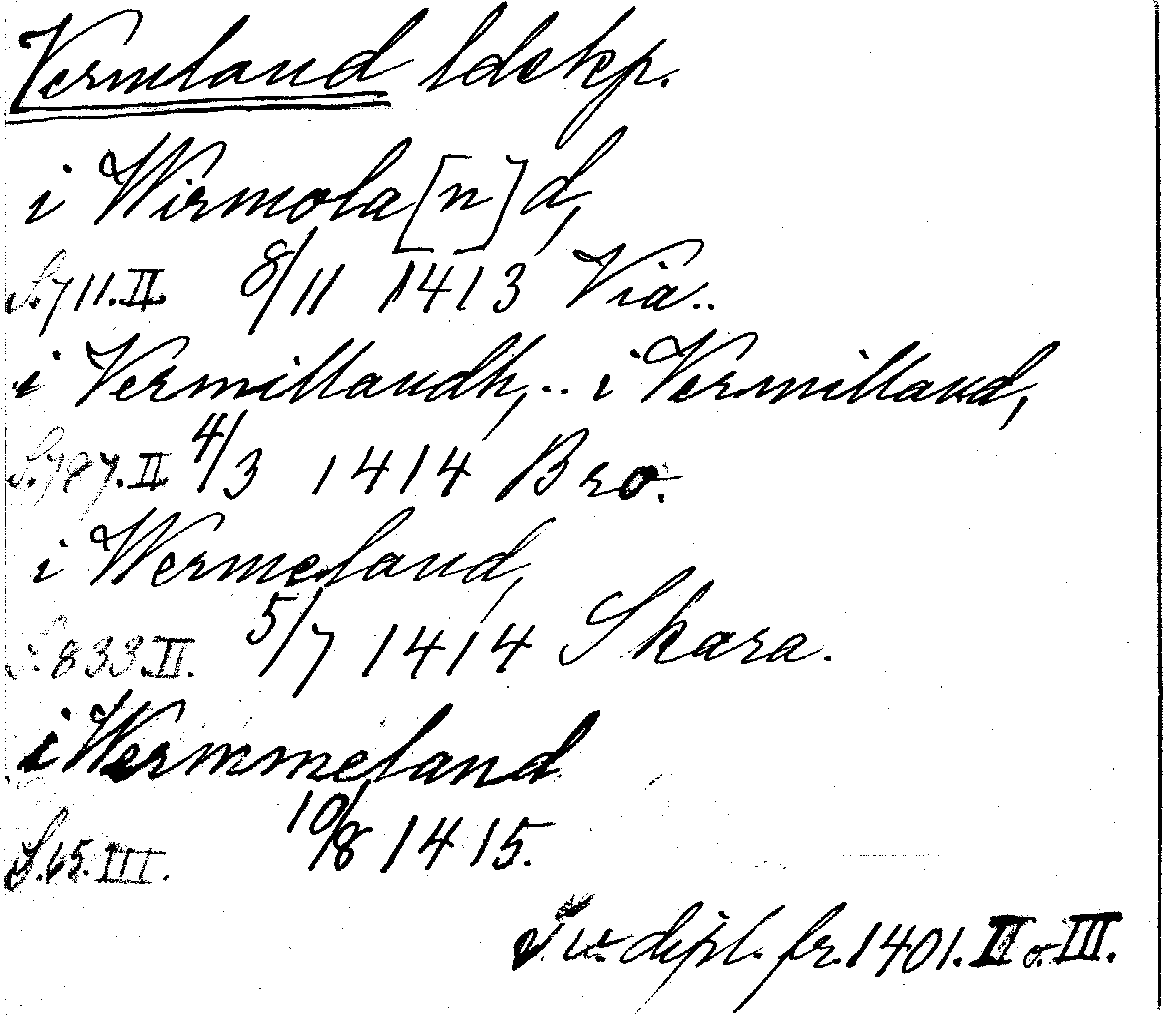 Vermland ldskp.
i Wirmola[n]d,
S. 711. II. 8/11 1413 Via..
i Vermillandh,.. i Vermilland,
S. 787. II 4/3 1414 Bro.
i Wermeland,
S. 833. II. 5/7 1414 Skara.
i Wermmeland
S. 65. III. 10/8 1415.
Sv. dipl. fr. 1401. II o. III.